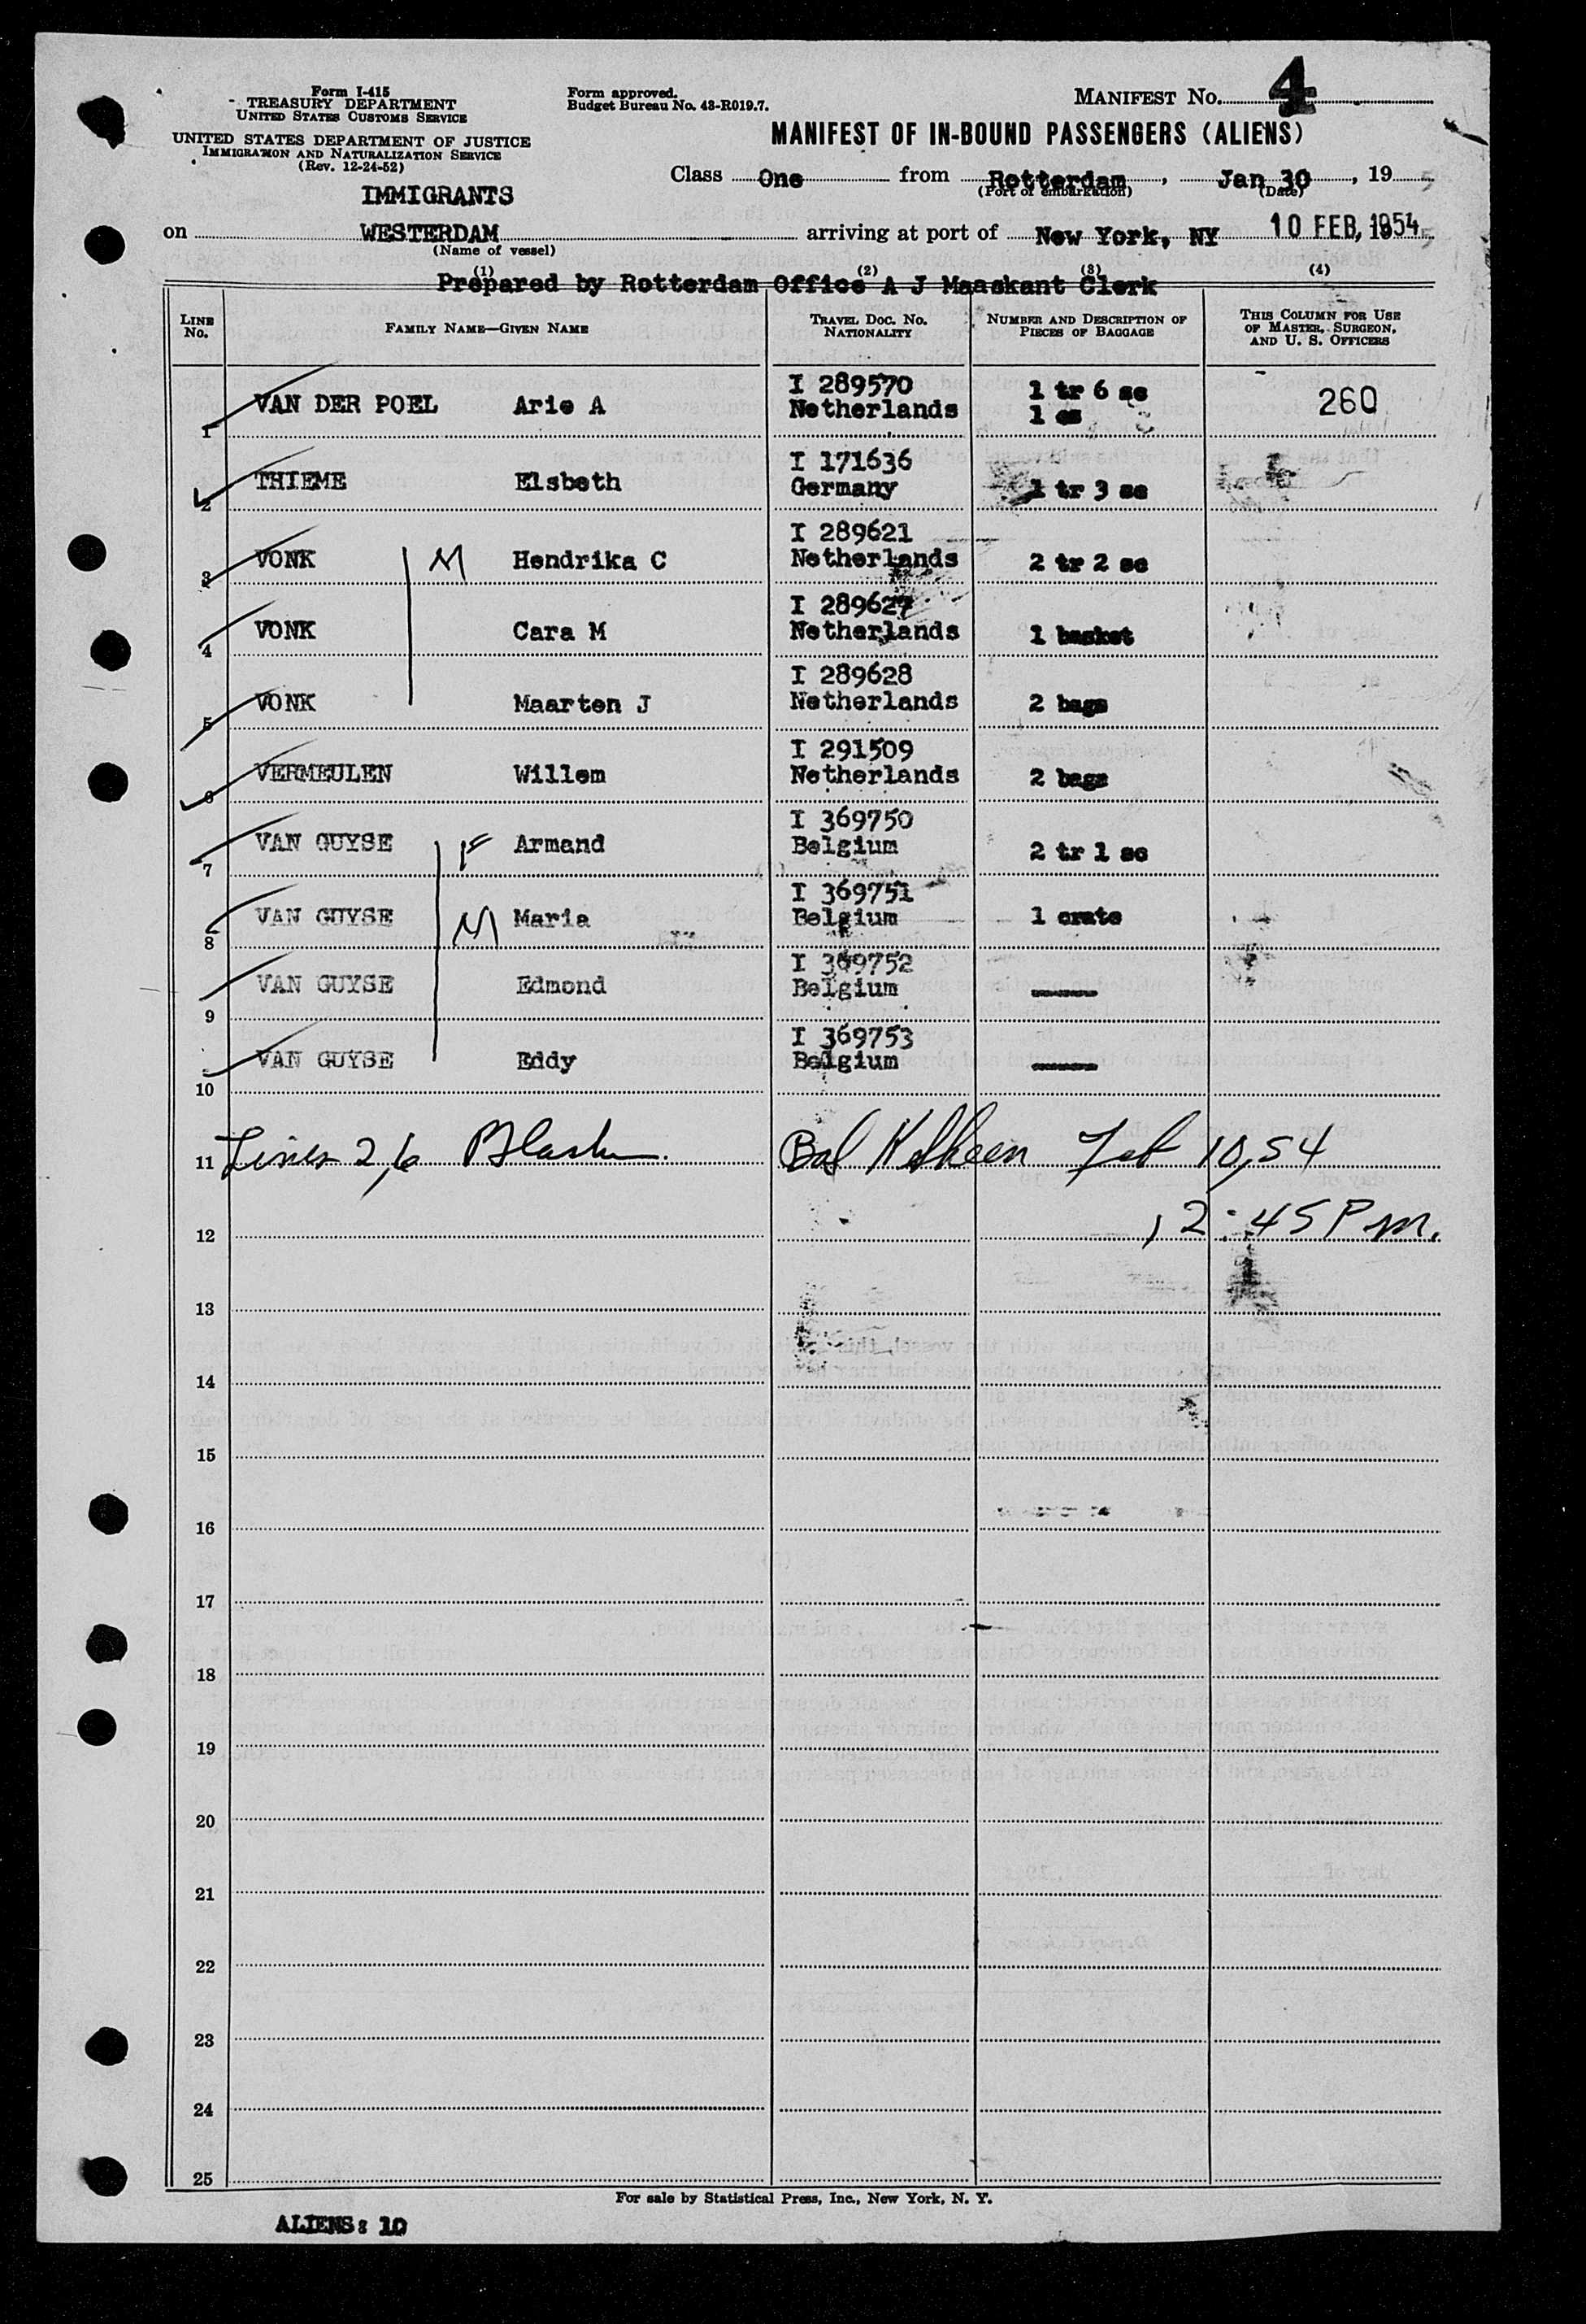 Form I-415
TREASURY DEPARTMENT
UNITED STATES CUSTOMS SERVICE
UNITED STATES DEPARTMENT OF JUSTICE
IMMIGRATION AND NATURALIZATION SERVICE
(Rev. 12-24-52)
Form approved.
Budget Bureau No. 43-R019.7.
MANIFEST NO. 4
MANIFEST OF IN-BOUND PASSENGERS (ALIENS)
Class One from Rotterdam, Jan 30, 195
(Port of embarkation) (Date)
IMMIGRANTS
on WESTERDAM arriving at port of New York, NY 10 FEB, 1954
(Name of vessel)
(1) (2) (3) (4)
Prepared by Rotterdam Office A J Maaskant Clerk
LINE No. FAMILY NAME—GIVEN NAME TRAVEL DOC. NO. NATIONALITY NUMBER AND DESCRIPTION OF PIECES OF BAGGAGE THIS COLUMN FOR USE OF MASTER, SURGEON, AND U. S. OFFICERS
1 VAN DER POEL Arie A I 289570 Netherlands 1 tr 6 sc 1 cs 260
2 THIEME Elsbeth I 171636 Germany 1 tr 3 sc
3 VONK M Hendrika C I 289621 Netherlands 2 tr 2 sc
4 VONK Cara M I 289627 Netherlands 1 basket
5 VONK Maarten J I 289628 Netherlands 2 bags
6 VERMEULEN Willem I 291509 Netherlands 2 bags
7 VAN GUYSE F Armand I 369750 Belgium 2 tr 1 sc
8 VAN GUYSE M Maria I 369751 Belgium 1 crate
9 VAN GUYSE Edmond I 369752 Belgium
10 VAN GUYSE Eddy I 369753 Belgium
11 Lines 2,6 Bal Feb 10, 54
12 12:45 P m.
13
14
15
16
17
18
19
20
21
22
23
24
25
For sale by Statistical Press, Inc., New York, N. Y.
ALIENS: 10